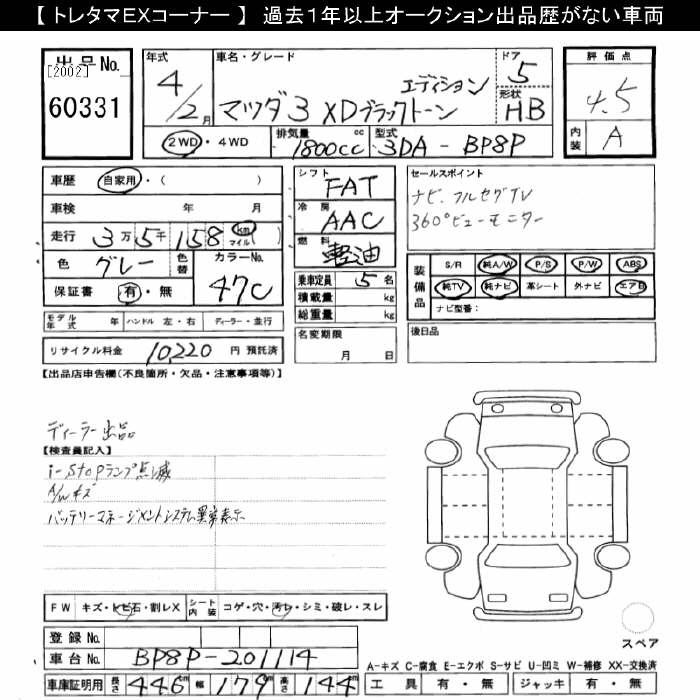 【 トレタマEXコーナー 】 過去1年以上オークション出品歴がない車両
出品No.
[2002]
60331
年式
4/2月
車名・グレード
マツダ3 XDブラックトーン
エディション
ドア
5
形状
HB
2WD・4WD
排気量
1800cc
cc
型式
3DA-BP8P
評価点
4.5
内装
A
車歴 自家用・( )
車検 年 月
走行 3万5千158 km マイル ( )
色 グレー 色替 カラーNo. 47C
保証書 有・無
モデル年式 年 ハンドル 左・右 ディーラー・並行
リサイクル料金 10,220 円 預託済
シフト
FAT
冷房
AAC
燃料
軽油
乗車定員 5 名
積載量 kg
総重量 kg
名変期限
月 日
セールスポイント
ナビ、フルセグTV
360°ビューモニター
装備品
S/R 純A/W P/S P/W ABS
純TV 純ナビ 革シート 外ナビ エアB
ナビ型番:
後日品
【出品店申告欄(不良箇所・欠品・注意事項等)】
ディーラー出品
【検査員記入】
i-stopランプ点滅
A/Wキズ
バッテリーマネージメントシステム異常表示
FW キズ・トビ石・割レX シート内装 コゲ・穴・汚レ・シミ・破レ・スレ
登録No.
車台No. BP8P-201114
車庫証明用 長さ 446cm 幅 179cm 高さ 144cm
スペア
A-キズ C-腐食 E-エクボ S-サビ U-凹ミ W-補修 XX-交換済
工具 有・無 ジャッキ 有・無